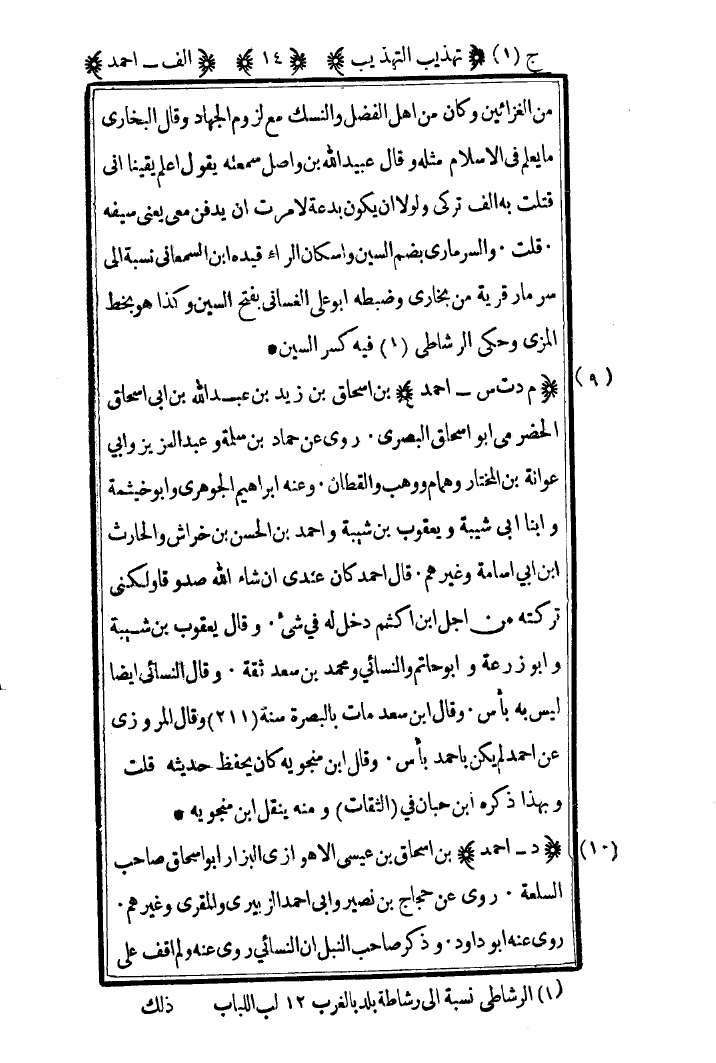 ج (١) ﴿ تهذيب التهذيب ﴾ ﴿ ١٤ ﴾ ﴿ الف ــ احمد ﴾
من الغزائين وكان من اهل الفضل والنسك مع لزوم الجهاد وقال البخارى
مايعلم فى الاسلام مثله وقال عبيدالله بن واصل سمعته يقول اعلم يقينا انى
قتلت به الف تركى ولولا ان يكون بدعة لامرت ان يدفن معى يعنى سيفه
٠ قلت ٠ والسرمارى بضم السين واسكان الراء قيده ابن السمعانى نسبة الى
سرمار قرية من بخارى وضبطه ابوعلى الغسانى بفتح السين وكذا هو بخط
المزى وحكى الرشاطى (١) فيه كسر السين *
(٩) ﴿ م دت س ــ احمد ﴾ بن اسحاق بن زيد بن عبدالله بن ابى اسحاق
الحضرمى ابو اسحاق البصرى ٠ روى عن حماد بن سلمة و عبدالعزيز وابي
عوانة بن المختار وهمام ووهب والقطان ٠ وعنه ابراهيم الجوهرى وابوخيثمة
و ابنا ابى شيبة و يعقوب بن شيبة و احمد بن الحسن بن خراش والحارث
ابن ابي اسامة وغيرهم ٠ قال احمد كان عندى ان شاء الله صدوقا ولكنى
تركته من اجل ابن اكثم دخل له في شئ ٠ و قال يعقوب بن شيبة
و ابو زرعة و ابوحاتم والنسائي ومحمد بن سعد ثقة ٠ و قال النسائى ايضا
ليس به بأس ٠ وقال ابن سعد مات بالبصرة سنة (٢١١) وقال المروزى
عن احمد لم يكن باحمد بأس ٠ وقال ابن منجويه كان يحفظ حديثه قلت
و بهذا ذكره ابن حبان في (الثقات) و منه ينقل ابن منجويه *
(١٠) ﴿ د ــ احمد ﴾ بن اسحاق بن عيسى الاهوازى البزار ابو اسحاق صاحب
السلعة ٠ روى عن حجاج بن نصير وابى احمد الزبيرى والمقرى وغيرهم ٠
روى عنه ابو داود ٠ و ذكر صاحب النبل ان النسائي روى عنه ولم اقف على
(١) الرشاطى نسبة الى رشاطة بلد بالغرب ١٢ لب اللباب ذلك